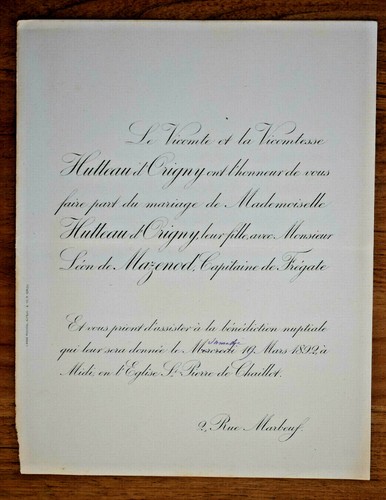 Le Vicomte et la Vicomtesse
Hulleau d'Origny ont l'honneur de vous
faire part du mariage de Mademoiselle
Hulleau d'Origny, leur fille, avec Monsieur
Léon de Mazenod, Capitaine de Frégate
Et vous prient d'assister à la bénédiction nuptiale
samedi
qui leur sera donnée le Mercredi 19 Mars 1892 à
Midi, en l'Eglise St Pierre de Chaillot.
2, Rue Marbeuf.